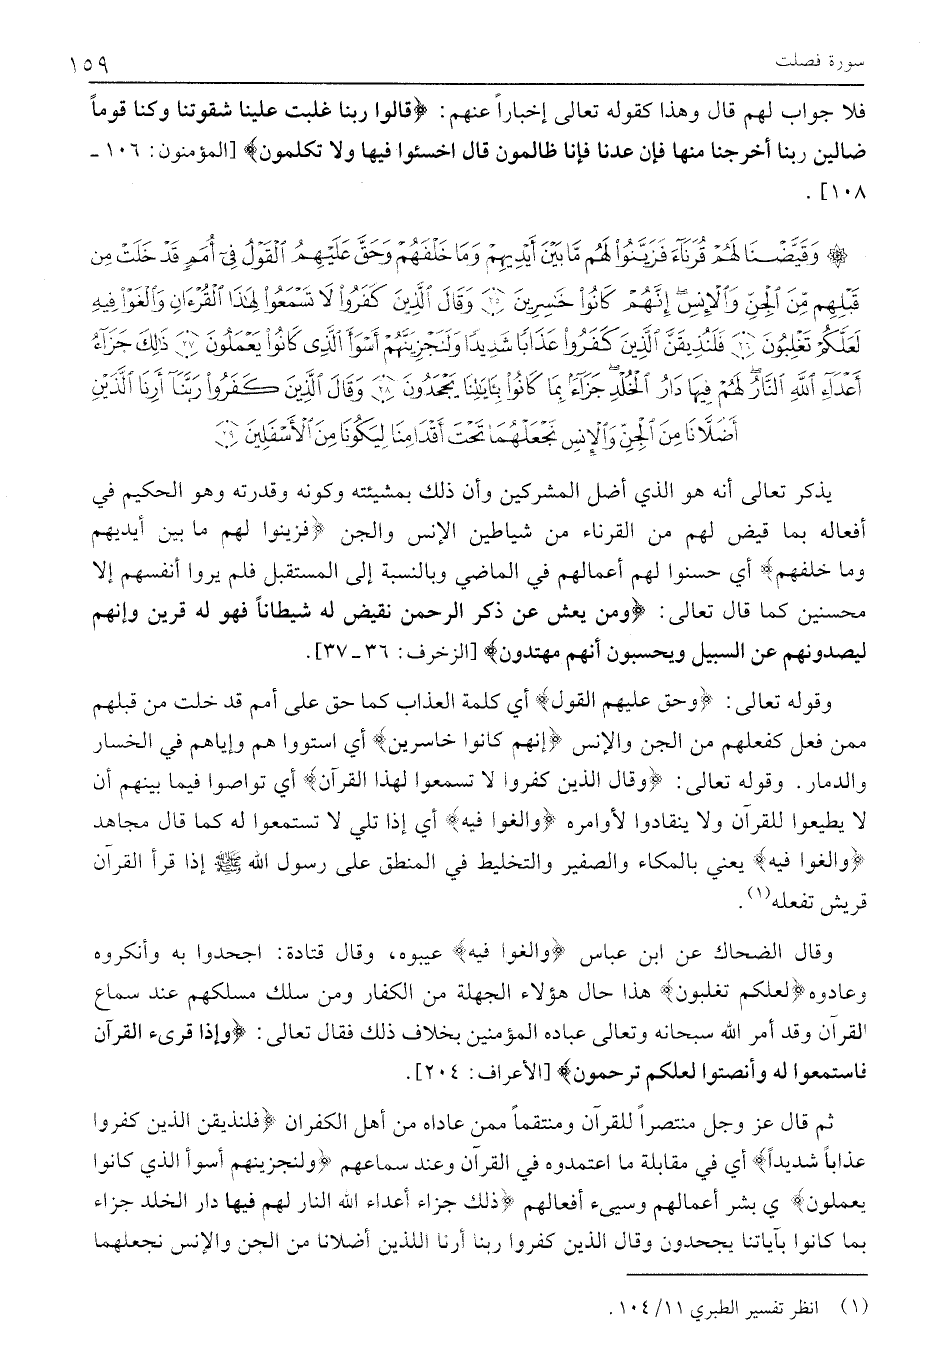 سورة فصلت ١٥٩
فلا جواب لهم قال وهذا كقوله تعالى إخباراً عنهم: ﴿قالوا ربنا غلبت علينا شقوتنا وكنا قوماً
ضالين ربنا أخرجنا منها فإن عدنا فإنا ظالمون قال اخسئوا فيها ولا تكلمون﴾ [المؤمنون: ١٠٦ ـ
١٠٨] .
۞ وَقَيَّضْنَا لَهُمْ قُرَنَآءَ فَزَيَّنُوا۟ لَهُم مَّا بَيْنَ أَيْدِيهِمْ وَمَا خَلْفَهُمْ وَحَقَّ عَلَيْهِمُ ٱلْقَوْلُ فِىٓ أُمَمٍ قَدْ خَلَتْ مِن
قَبْلِهِم مِّنَ ٱلْجِنِّ وَٱلْإِنسِ ۖ إِنَّهُمْ كَانُوا۟ خَٰسِرِينَ ﴿٢٥﴾ وَقَالَ ٱلَّذِينَ كَفَرُوا۟ لَا تَسْمَعُوا۟ لِهَٰذَا ٱلْقُرْءَانِ وَٱلْغَوْا۟ فِيهِ
لَعَلَّكُمْ تَغْلِبُونَ ﴿٢٦﴾ فَلَنُذِيقَنَّ ٱلَّذِينَ كَفَرُوا۟ عَذَابًا شَدِيدًا وَلَنَجْزِيَنَّهُمْ أَسْوَأَ ٱلَّذِى كَانُوا۟ يَعْمَلُونَ ﴿٢٧﴾ ذَٰلِكَ جَزَآءُ
أَعْدَآءِ ٱللَّهِ ٱلنَّارُ ۖ لَهُمْ فِيهَا دَارُ ٱلْخُلْدِ ۖ جَزَآءًۢ بِمَا كَانُوا۟ بِـَٔايَٰتِنَا يَجْحَدُونَ ﴿٢٨﴾ وَقَالَ ٱلَّذِينَ كَفَرُوا۟ رَبَّنَآ أَرِنَا ٱلَّذَيْنِ
أَضَلَّانَا مِنَ ٱلْجِنِّ وَٱلْإِنسِ نَجْعَلْهُمَا تَحْتَ أَقْدَامِنَا لِيَكُونَا مِنَ ٱلْأَسْفَلِينَ ﴿٢٩﴾
يذكر تعالى أنه هو الذي أضل المشركين وأن ذلك بمشيئته وكونه وقدرته وهو الحكيم في
أفعاله بما قيض لهم من القرناء من شياطين الإنس والجن ﴿فزينوا لهم ما بين أيديهم
وما خلفهم﴾ أي حسنوا لهم أعمالهم في الماضي وبالنسبة إلى المستقبل فلم يروا أنفسهم إلا
محسنين كما قال تعالى: ﴿ومن يعش عن ذكر الرحمن نقيض له شيطاناً فهو له قرين وإنهم
ليصدونهم عن السبيل ويحسبون أنهم مهتدون﴾ [الزخرف: ٣٦ ـ ٣٧].
وقوله تعالى: ﴿وحق عليهم القول﴾ أي كلمة العذاب كما حق على أمم قد خلت من قبلهم
ممن فعل كفعلهم من الجن والإنس ﴿إنهم كانوا خاسرين﴾ أي استووا هم وإياهم في الخسار
والدمار. وقوله تعالى: ﴿وقال الذين كفروا لا تسمعوا لهذا القرآن﴾ أي تواصوا فيما بينهم أن
لا يطيعوا للقرآن ولا ينقادوا لأوامره ﴿والغوا فيه﴾ أي إذا تلي لا تستمعوا له كما قال مجاهد
﴿والغوا فيه﴾ يعني بالمكاء والصفير والتخليط في المنطق على رسول الله ﷺ إذا قرأ القرآن
قريش تفعله(١).
وقال الضحاك عن ابن عباس ﴿والغوا فيه﴾ عيبوه، وقال قتادة: اجحدوا به وأنكروه
وعادوه ﴿لعلكم تغلبون﴾ هذا حال هؤلاء الجهلة من الكفار ومن سلك مسلكهم عند سماع
القرآن وقد أمر الله سبحانه وتعالى عباده المؤمنين بخلاف ذلك فقال تعالى: ﴿وإذا قرىء القرآن
فاستمعوا له وأنصتوا لعلكم ترحمون﴾ [الأعراف: ٢٠٤].
ثم قال عز وجل منتصراً للقرآن ومنتقماً ممن عاداه من أهل الكفران ﴿فلنذيقن الذين كفروا
عذاباً شديداً﴾ أي في مقابلة ما اعتمدوه في القرآن وعند سماعهم ﴿ولنجزينهم أسوأ الذي كانوا
يعملون﴾ ي بشر أعمالهم وسيىء أفعالهم ﴿ذلك جزاء أعداء الله النار لهم فيها دار الخلد جزاء
بما كانوا بآياتنا يجحدون وقال الذين كفروا ربنا أرنا اللذين أضلانا من الجن والإنس نجعلهما
(١) انظر تفسير الطبري ١١/ ١٠٤ .